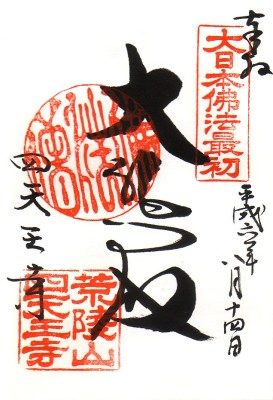 奉拝
大日本佛法最初
平成六年八月十四日
大
四天王寺
荒陵山
四天王寺